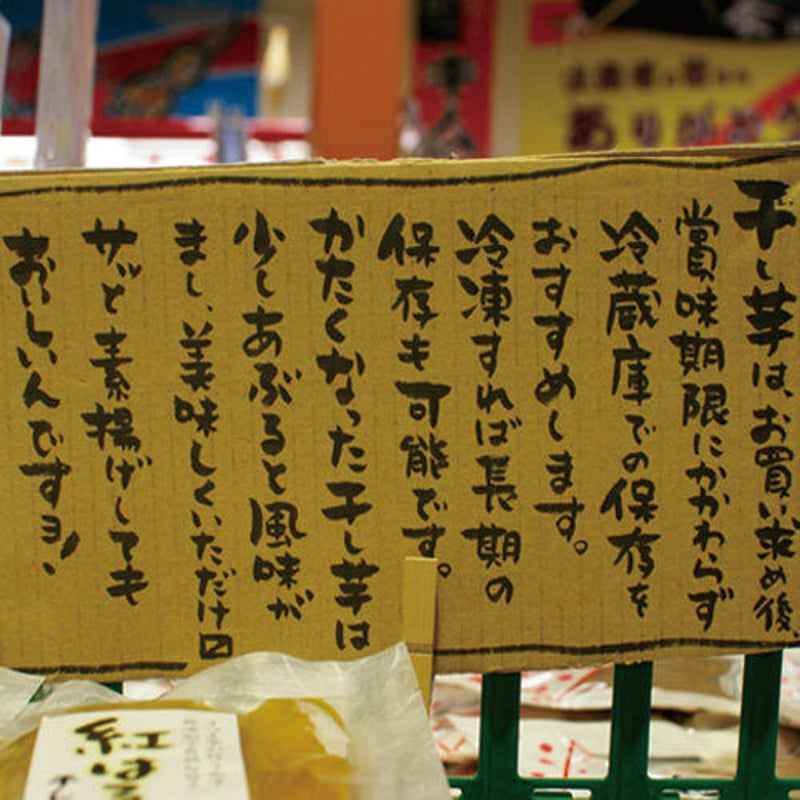 干し芋は、お買い求め後、
賞味期限にかかわらず
冷蔵庫での保存を
おすすめします。
冷凍すれば長期の
保存も可能です。
かたくなった干し芋は
少しあぶると風味が
まし、美味しくいただけ〼
サッと素揚げしても
おいしいんですョ!、
ありがとう
紅はる